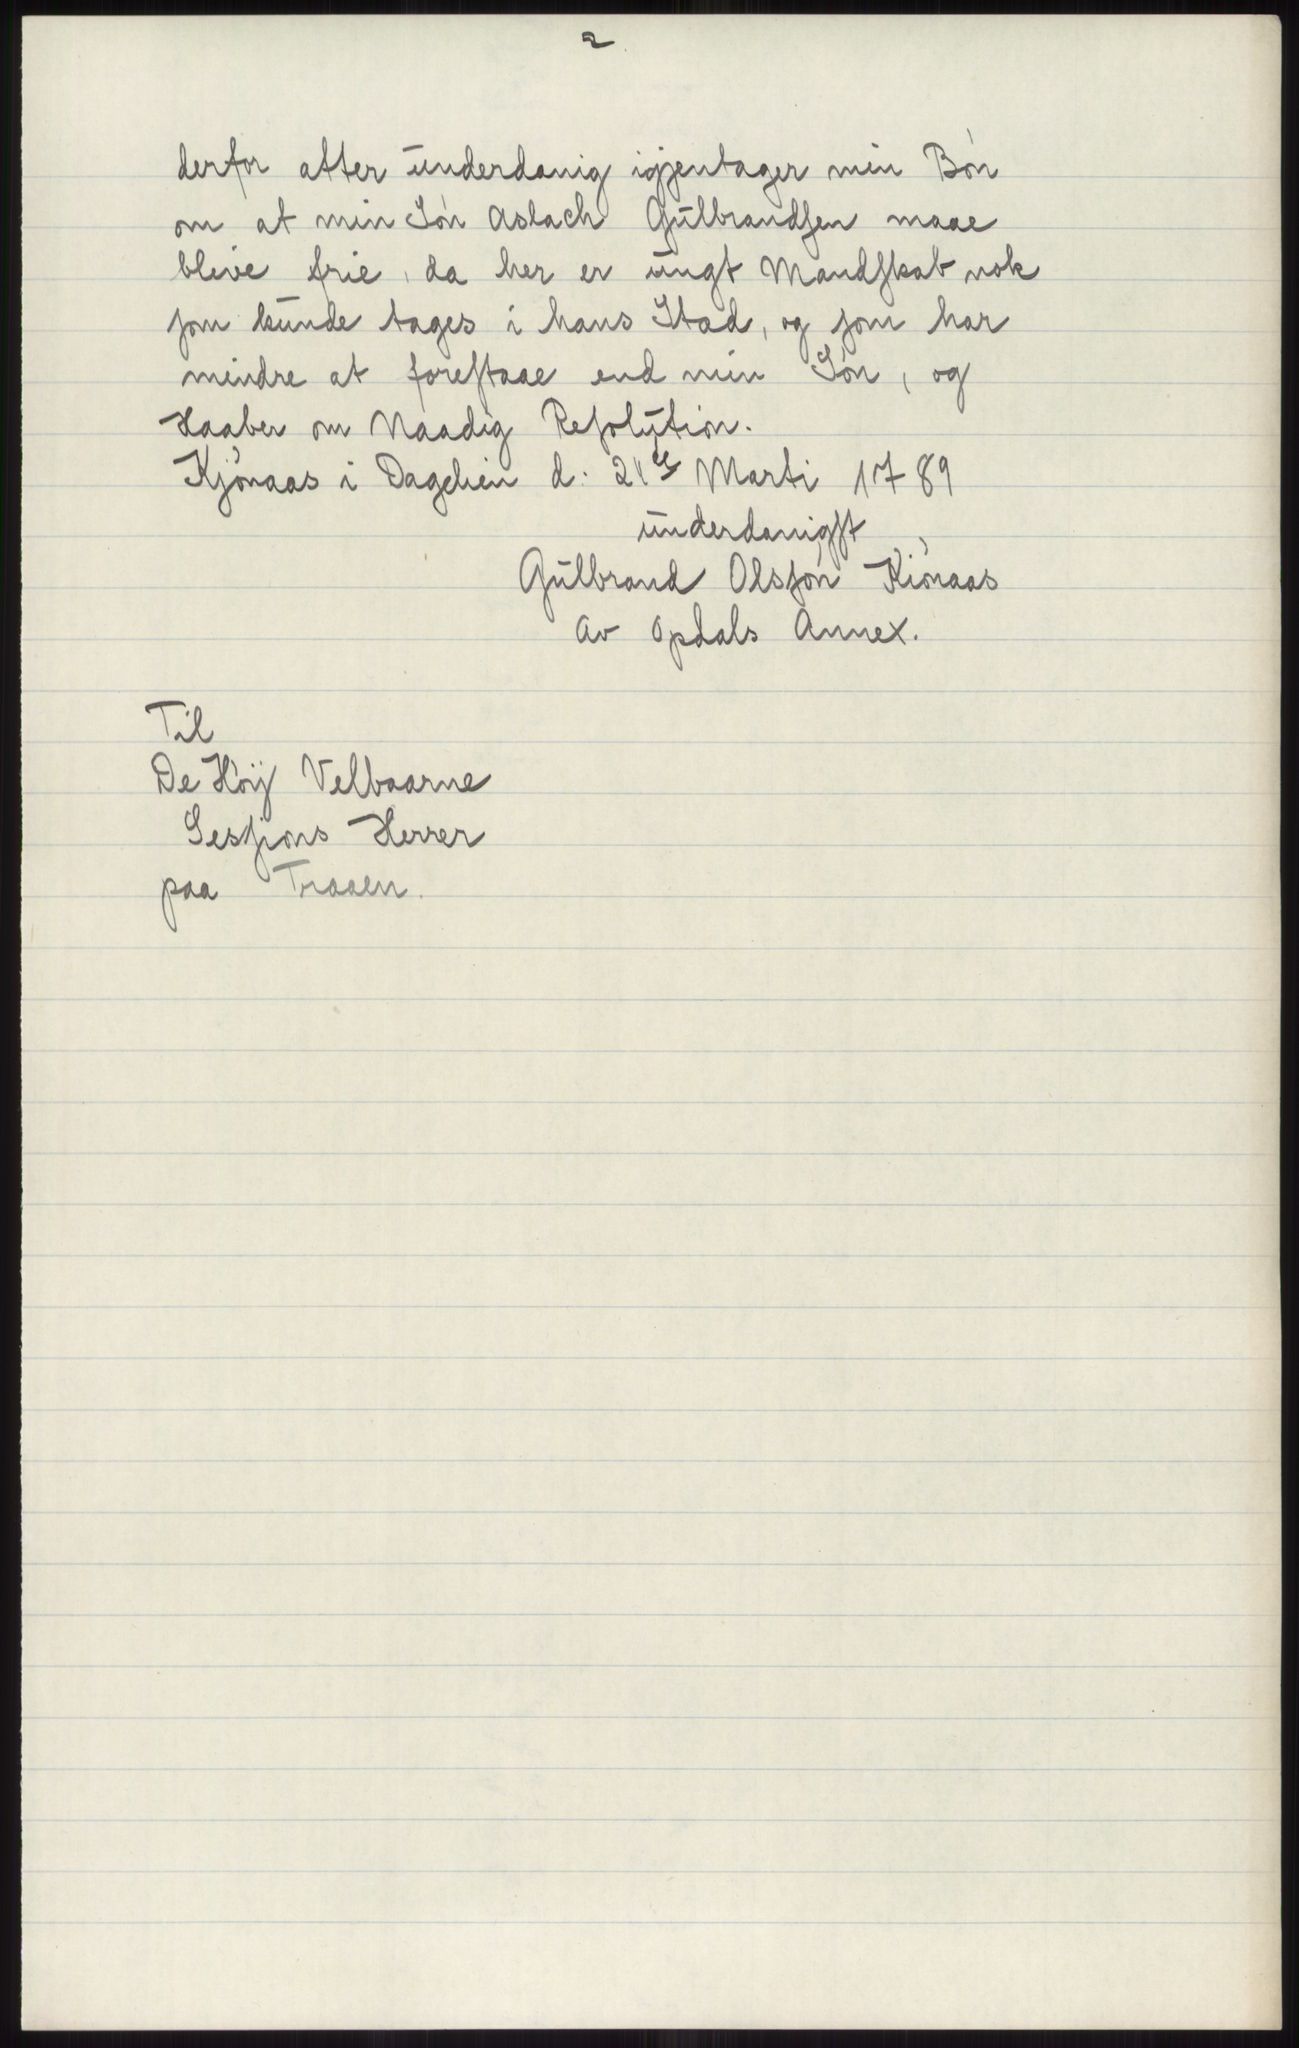 2
derfor atter underdanig igjentager min Bón
om at min Són Aslach Gulbrandsen maae
blive frie, da her er ungt Mandskab nok
som kunde tages i hans Stad, og som har
mindre at forestaae end min Són, og
Haaber om Naadig Resolution.
Kjónaas i Dagelien d. 21de Marti 1789
underdanigst
Gulbrand Olssón Kiónaas
av Opdals Annex.
Til
De Hóÿ Velbaarne
Sessions Herrer
paa Traaen.